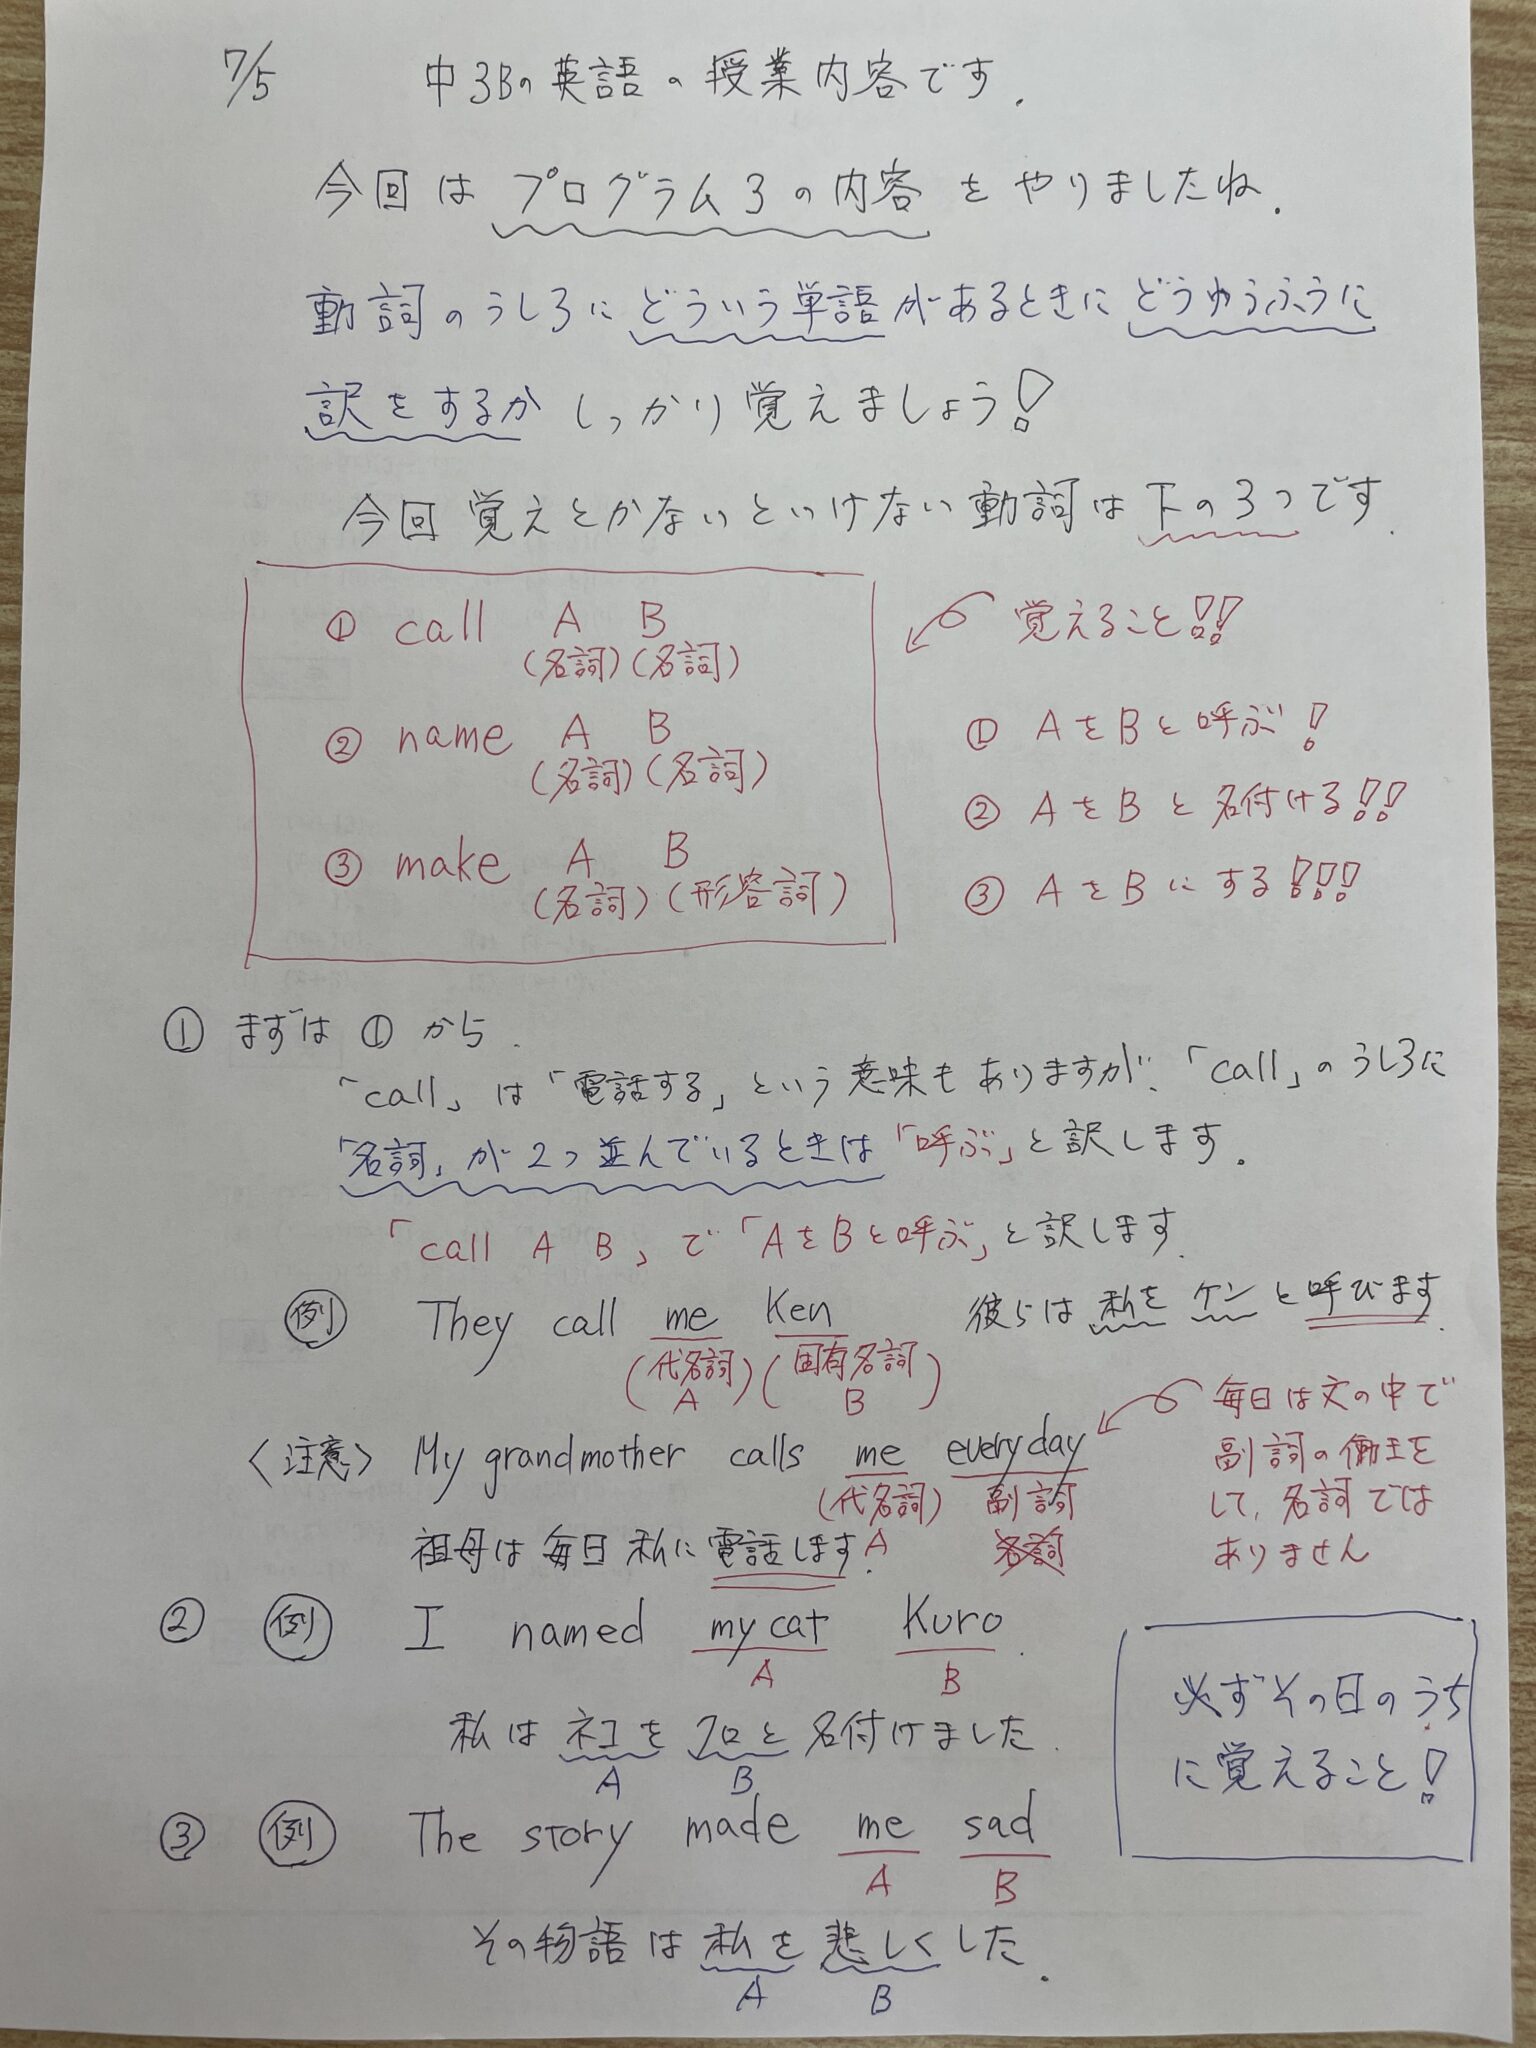 7/5 中3Bの英語の授業内容です.
今回はプログラム3の内容をやりましたね.
動詞のうしろにどういう単語があるときにどうゆうふうに
訳をするかしっかり覚えましょう!
今回覚えとかないといけない動詞は下の3つです.
① call A B
(名詞)(名詞)
② name A B
(名詞)(名詞)
③ make A B
(名詞)(形容詞)
覚えること!!
① AをBと呼ぶ!
② AをBと名付ける!!
③ AをBにする!!!
① まずは①から.
「call」は「電話する」という意味もありますが、「call」のうしろに
「名詞」が2つ並んでいるときは「呼ぶ」と訳します.
「call A B」で「AをBと呼ぶ」と訳します.
例 They call me Ken 彼らは私をケンと呼びます.
(代名詞)(固有名詞)
A B
〈注意〉 My grandmother calls me everyday
(代名詞) 副詞
祖母は毎日私に電話します. A 名詞
毎日は文の中で
副詞の働きを
して、名詞では
ありません
② 例 I named my cat Kuro.
A B
私はネコをクロと名付けました.
A B
③ 例 The story made me sad
A B
その物語は私を悲しくした.
A B
必ずその日のうち
に覚えること!